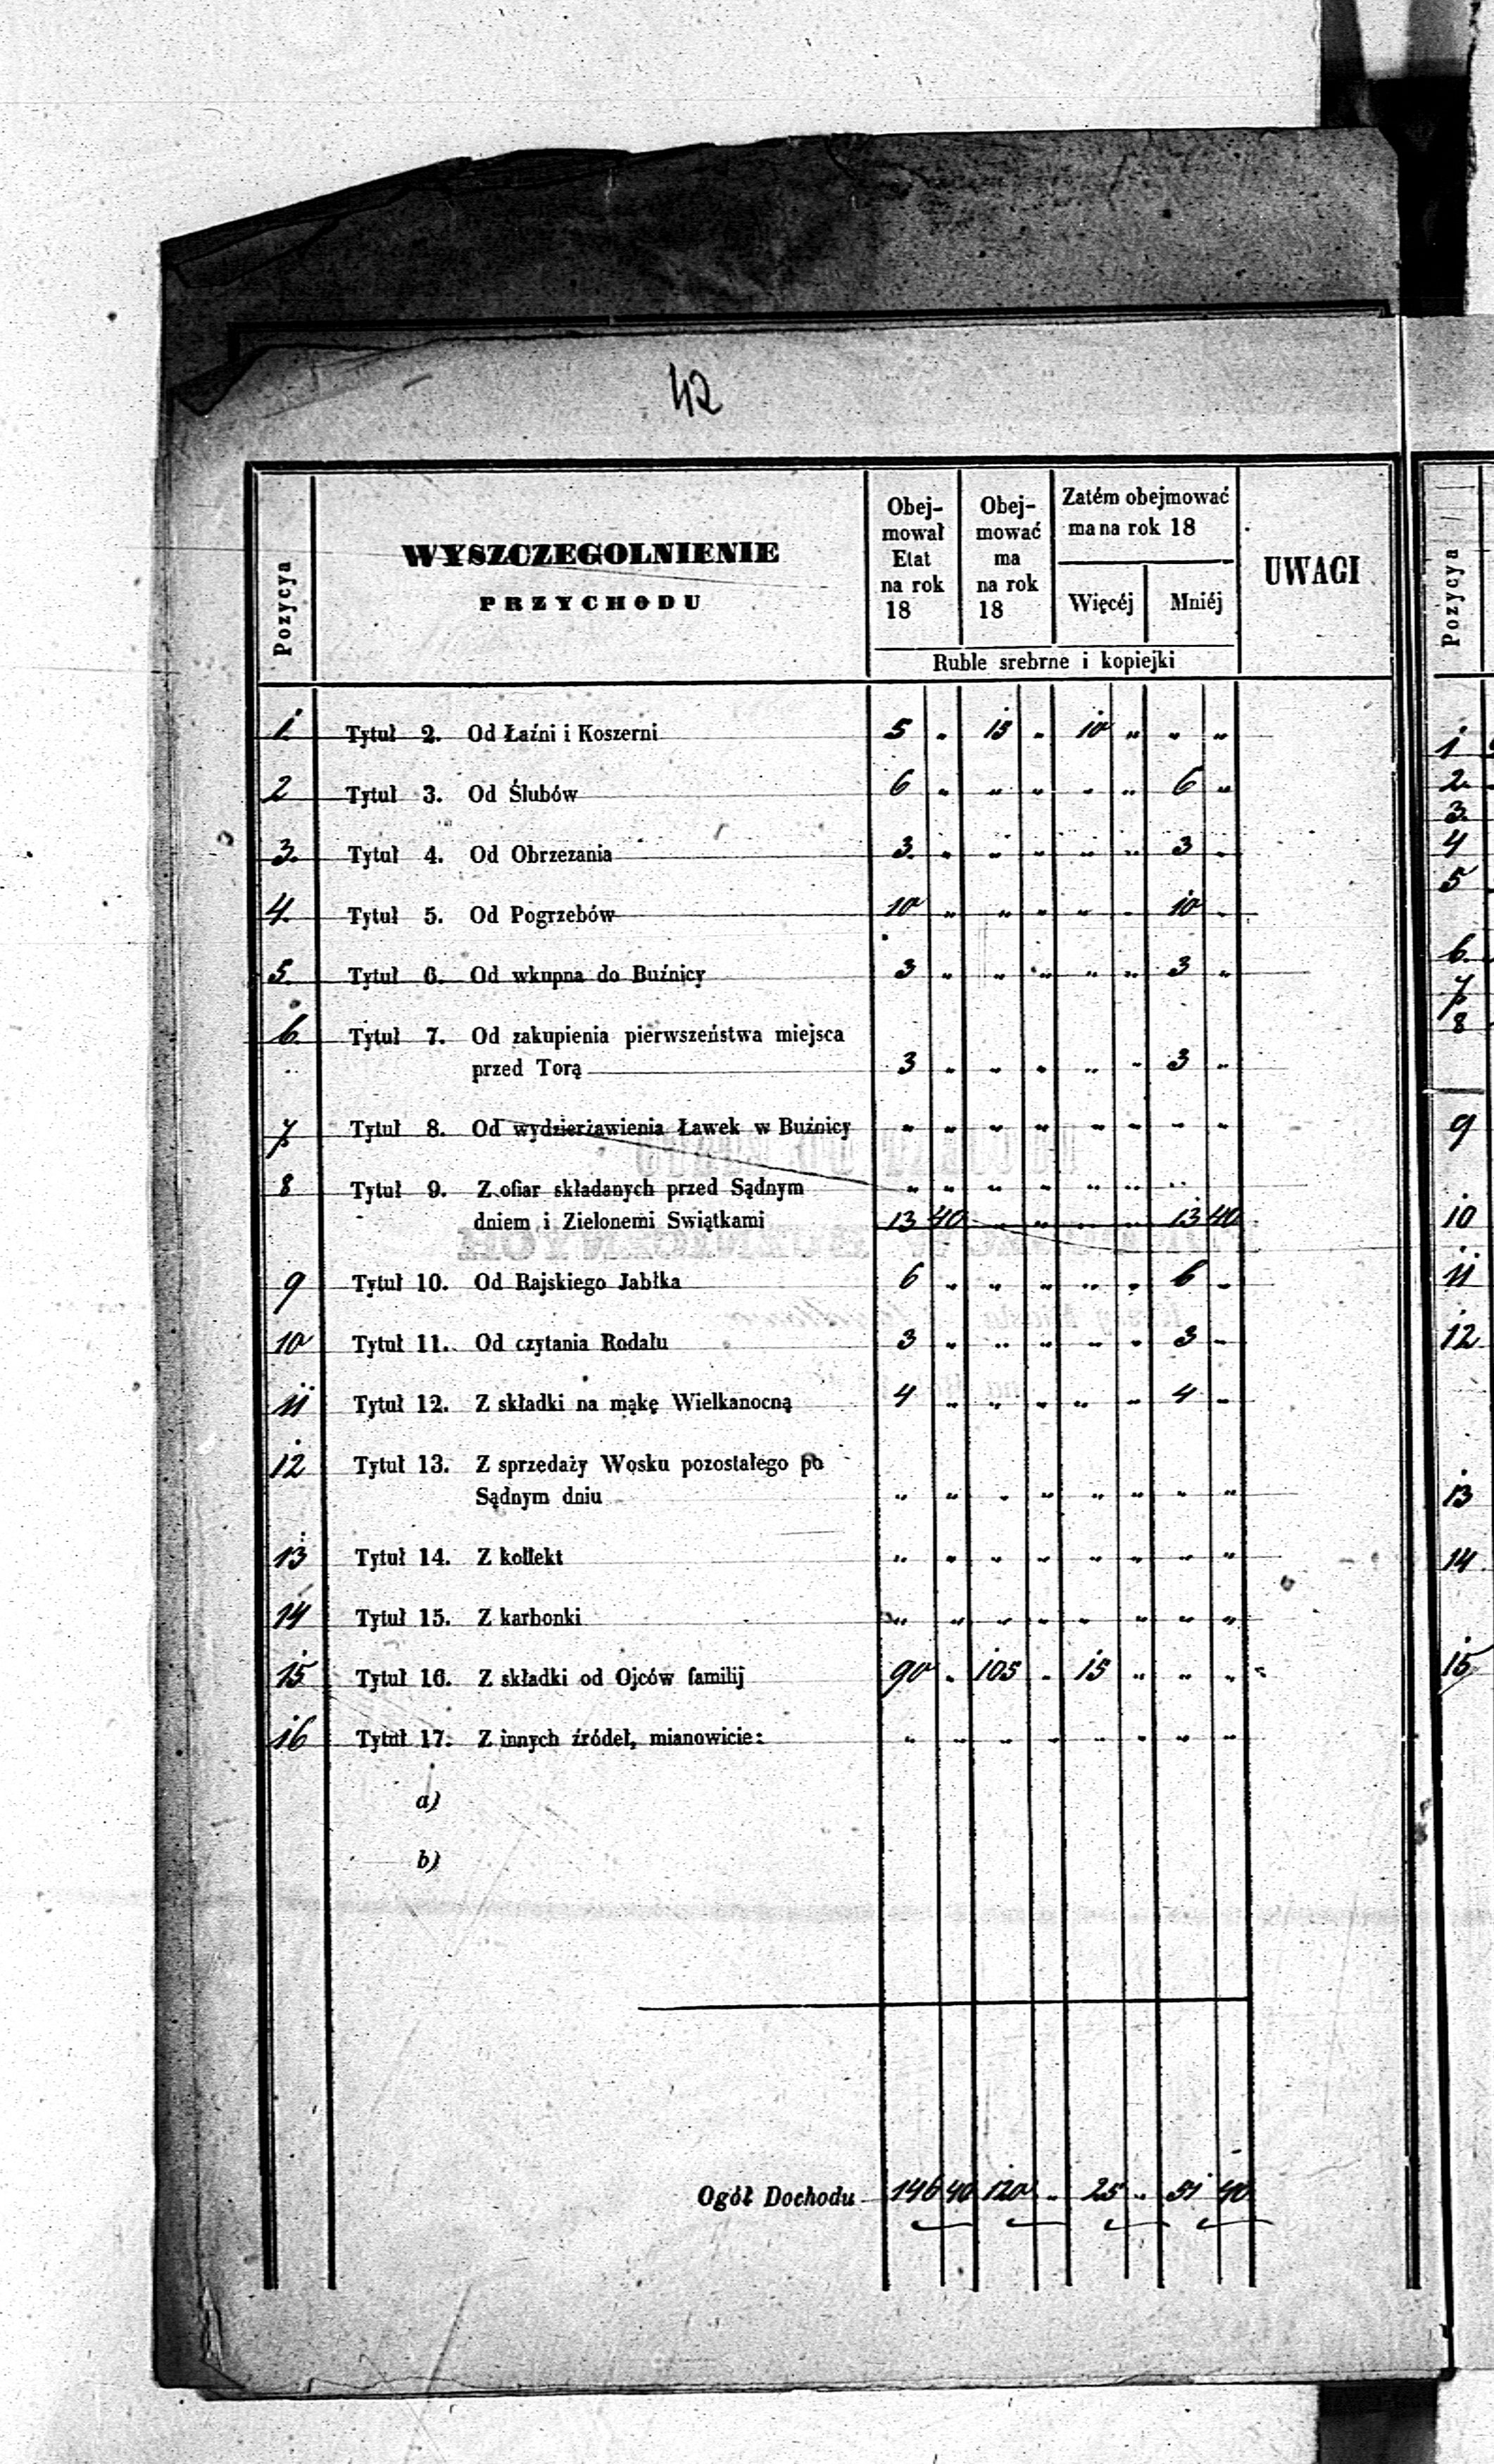 42
Pozycya
WYSZCZEGOLNIENIE
PRZYCHODU
Obej-
mował
Etat
na rok
18
Obej-
mować
ma
na rok
18
Zatém obejmować
ma na rok 18
Więcéj
Mniéj
UWAGI
Ruble srebrne i kopiejki
1. Tytuł 2. Od Łaźni i Koszerni 5 " 15 " 10 " " "
2 Tytuł 3. Od Ślubów 6 " " " " " 6 "
3. Tytuł 4. Od Obrzezania 3. " " " " " 3 "
4. Tytuł 5. Od Pogrzebów 10 " " " " " 10 "
5. Tytuł 6. Od wkupna do Buźnicy 3 " " " " " 3 "
6. Tytuł 7. Od zakupienia pierwszeństwa miejsca
przed Torą 3 " " " " " 3 "
7 Tytuł 8. Od wydzierżawienia Ławek w Bużnicy " " " " " " " "
8 Tytuł 9. Z ofiar składanych przed Sądnym " " " " " " "
dniem i Zielonemi Swiątkami 13 40 " " " " 13 40
9 Tytuł 10. Od Rajskiego Jabłka 6 " " " " " 6 "
10 Tytuł 11. Od czytania Rodału 3 " " " " " 3 "
11 Tytuł 12. Z składki na mąkę Wielkanocną 4 " " " " " 4 "
12 Tytuł 13. Z sprzedaży Wosku pozostałego po
Sądnym dniu " " " " " " " "
13 Tytuł 14. Z kollekt " " " " " " " "
14 Tytuł 15. Z karbonki " " " " " " " "
15 Tytuł 16. Z składki od Ojców familij 90 " 105 " 15 " " "
16 Tytuł 17. Z innych źródeł, mianowicie: " " " " " " " "
a)
b)
Ogół Dochodu 146 40 120 " 25 " 51 40
Pozycya
1
2.
3.
4
5
6.
7
8
9
10
11
12
13
14
15